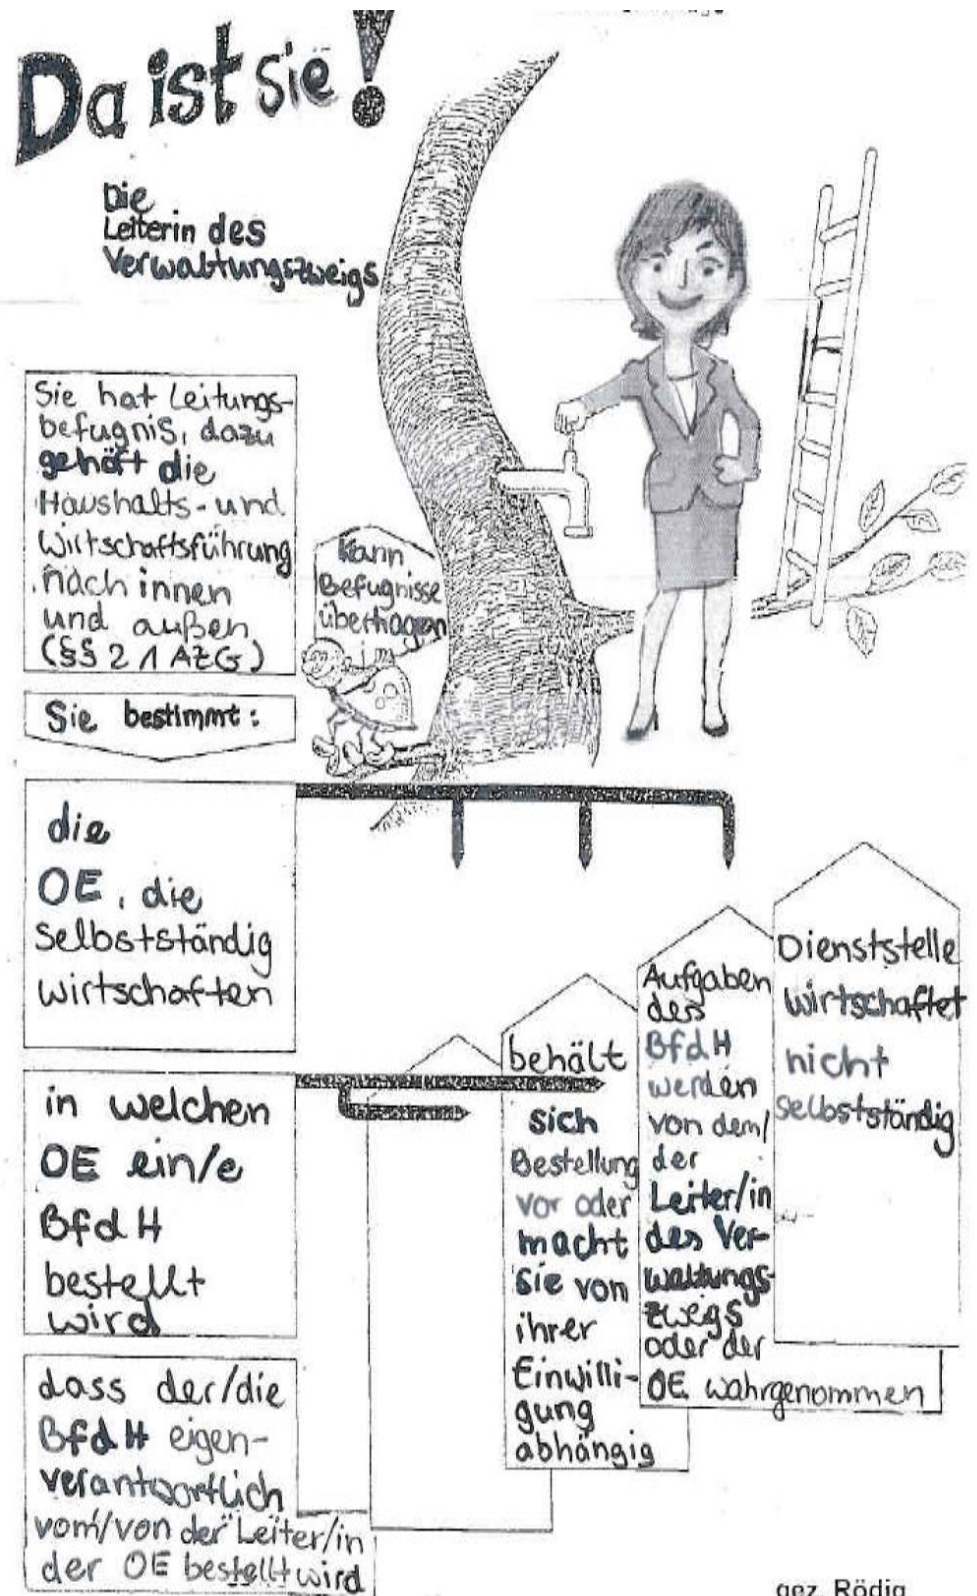 Da ist sie!
Die
Leiterin des
Verwaltungszweigs
Sie hat Leitungs-
befugnis, dazu
gehört die
Haushalts- und
Wirtschaftsführung
nach innen
und außen
(§§ 2 1 AZG)
Kann
Befugnisse
übertragen
Sie bestimmt:
die
OE, die
Selbstständig
wirtschaften
in welchen
OE ein/e
BfdH
bestellt
wird
dass der/die
BfdH eigen-
verantwortlich
vom/von der Leiter/in
der OE bestellt wird
behält
sich
Bestellung
vor oder
macht
sie von
ihrer
Einwilli-
gung
abhängig
Aufgaben
des
BfdH
werden
von dem/
der
Leiter/in
des Ver-
waltungs-
zweigs
oder der
OE wahrgenommen
Dienststelle
wirtschaftet
nicht
selbstständig
gez. Rödig